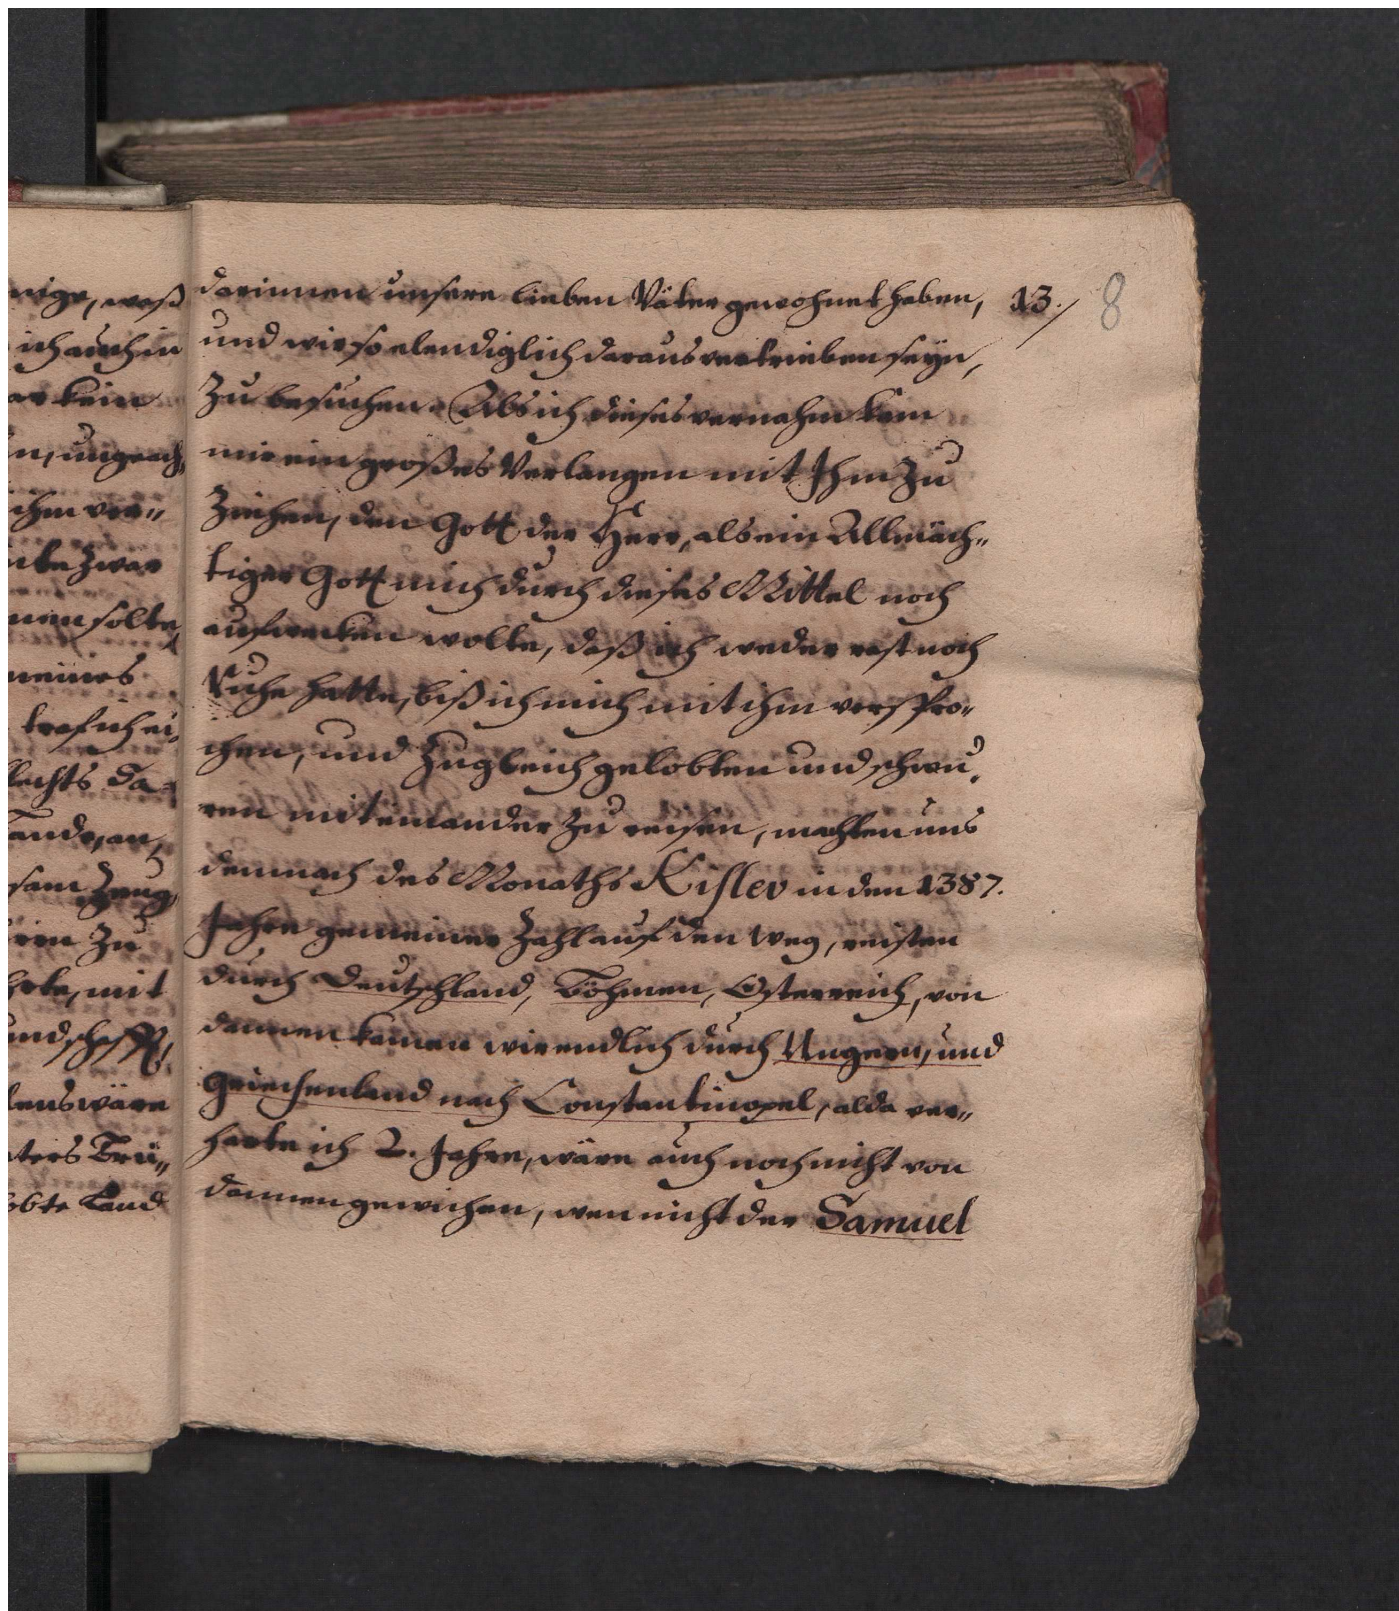 darinnen unsere lieben Väter gewohnet haben, 13. 8
und wir so elendiglich daraus vertrieben seyn,
Zu besuchen. Als ich dieses vernahm kam
mir ein großes Verlangen mit Ihm Zu
Ziehen, den Gott der Herr, als ein Allmäch„
tiger Gott mich durch dieses Mittel noch
aufwecken wolte, daß ich weder rast noch
Ruhe hatte, biß ich mich mit ihm verspro„
chen, und Zugleich gelobten und schwu„
ren miteinander Zu reisen, machten uns
demnach des Monaths Kislev in den 1387.
Jahre gemeiner Zahl auf den Weg, reisten
durch Deutschland, Böhmen, Österreich, von
dannen kamen wir endlich durch Ungern, und
Griechenland nach Constantinopel, alda ver„
harte ich 2. Jahre, wäre auch noch nicht von
dannen gewichen, wen nicht der Samuel
nige, waß
ich auch in
kein
ungeach„
ihm ver„
Zwar
solte,
meines
traf ich ei„
Da„
an,
Zeug
Zu
mit
wäre
Brü„
Land